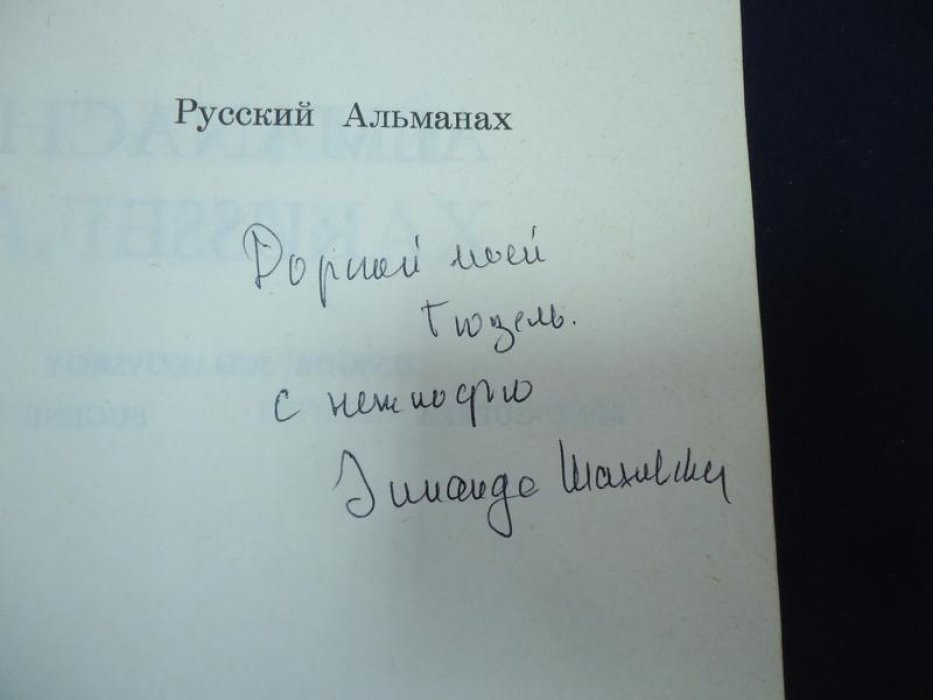 Русский Альманах
Дорогой моей
Гюзель.
с нежностью
Зинаида Шаховская